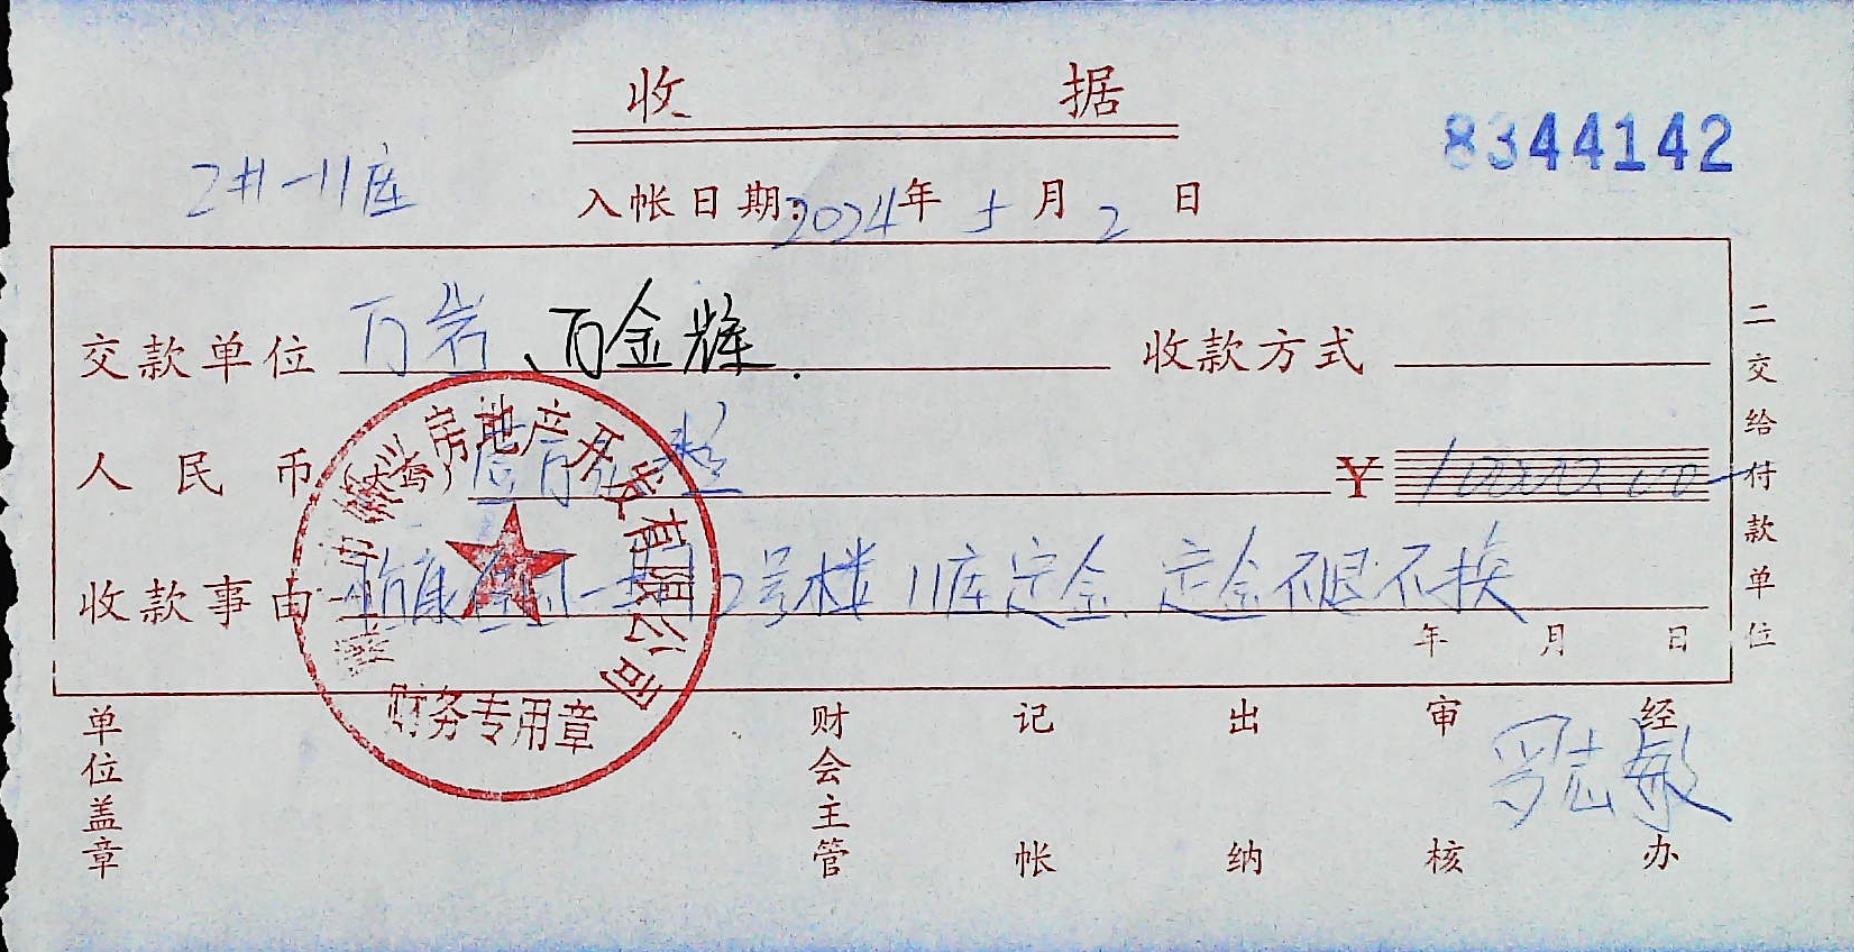 收 据
8344142
2#-11库
入帐日期:2024年 5 月 2 日
交款单位 万岩、万金辉. 收款方式
人民币(大写) 壹万元整 ¥ 10000.00
收款事由 2号楼 11库定金. 定金不退不换
年 月 日
二交给付款单位
房地产开发有限公司
财务专用章
单位盖章 财会主管 记帐 出纳 审核 经办
罗志敏